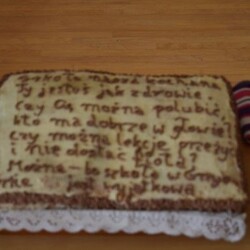 szkoło nasza kochana
Ty jesteś jak zdrowie.
czy Cię można polubić,
kto ma dobrze w głowie?
czy można lekcje przeżyć
i nie dostać
Można - bo szkoła w
jest wyjątkowa